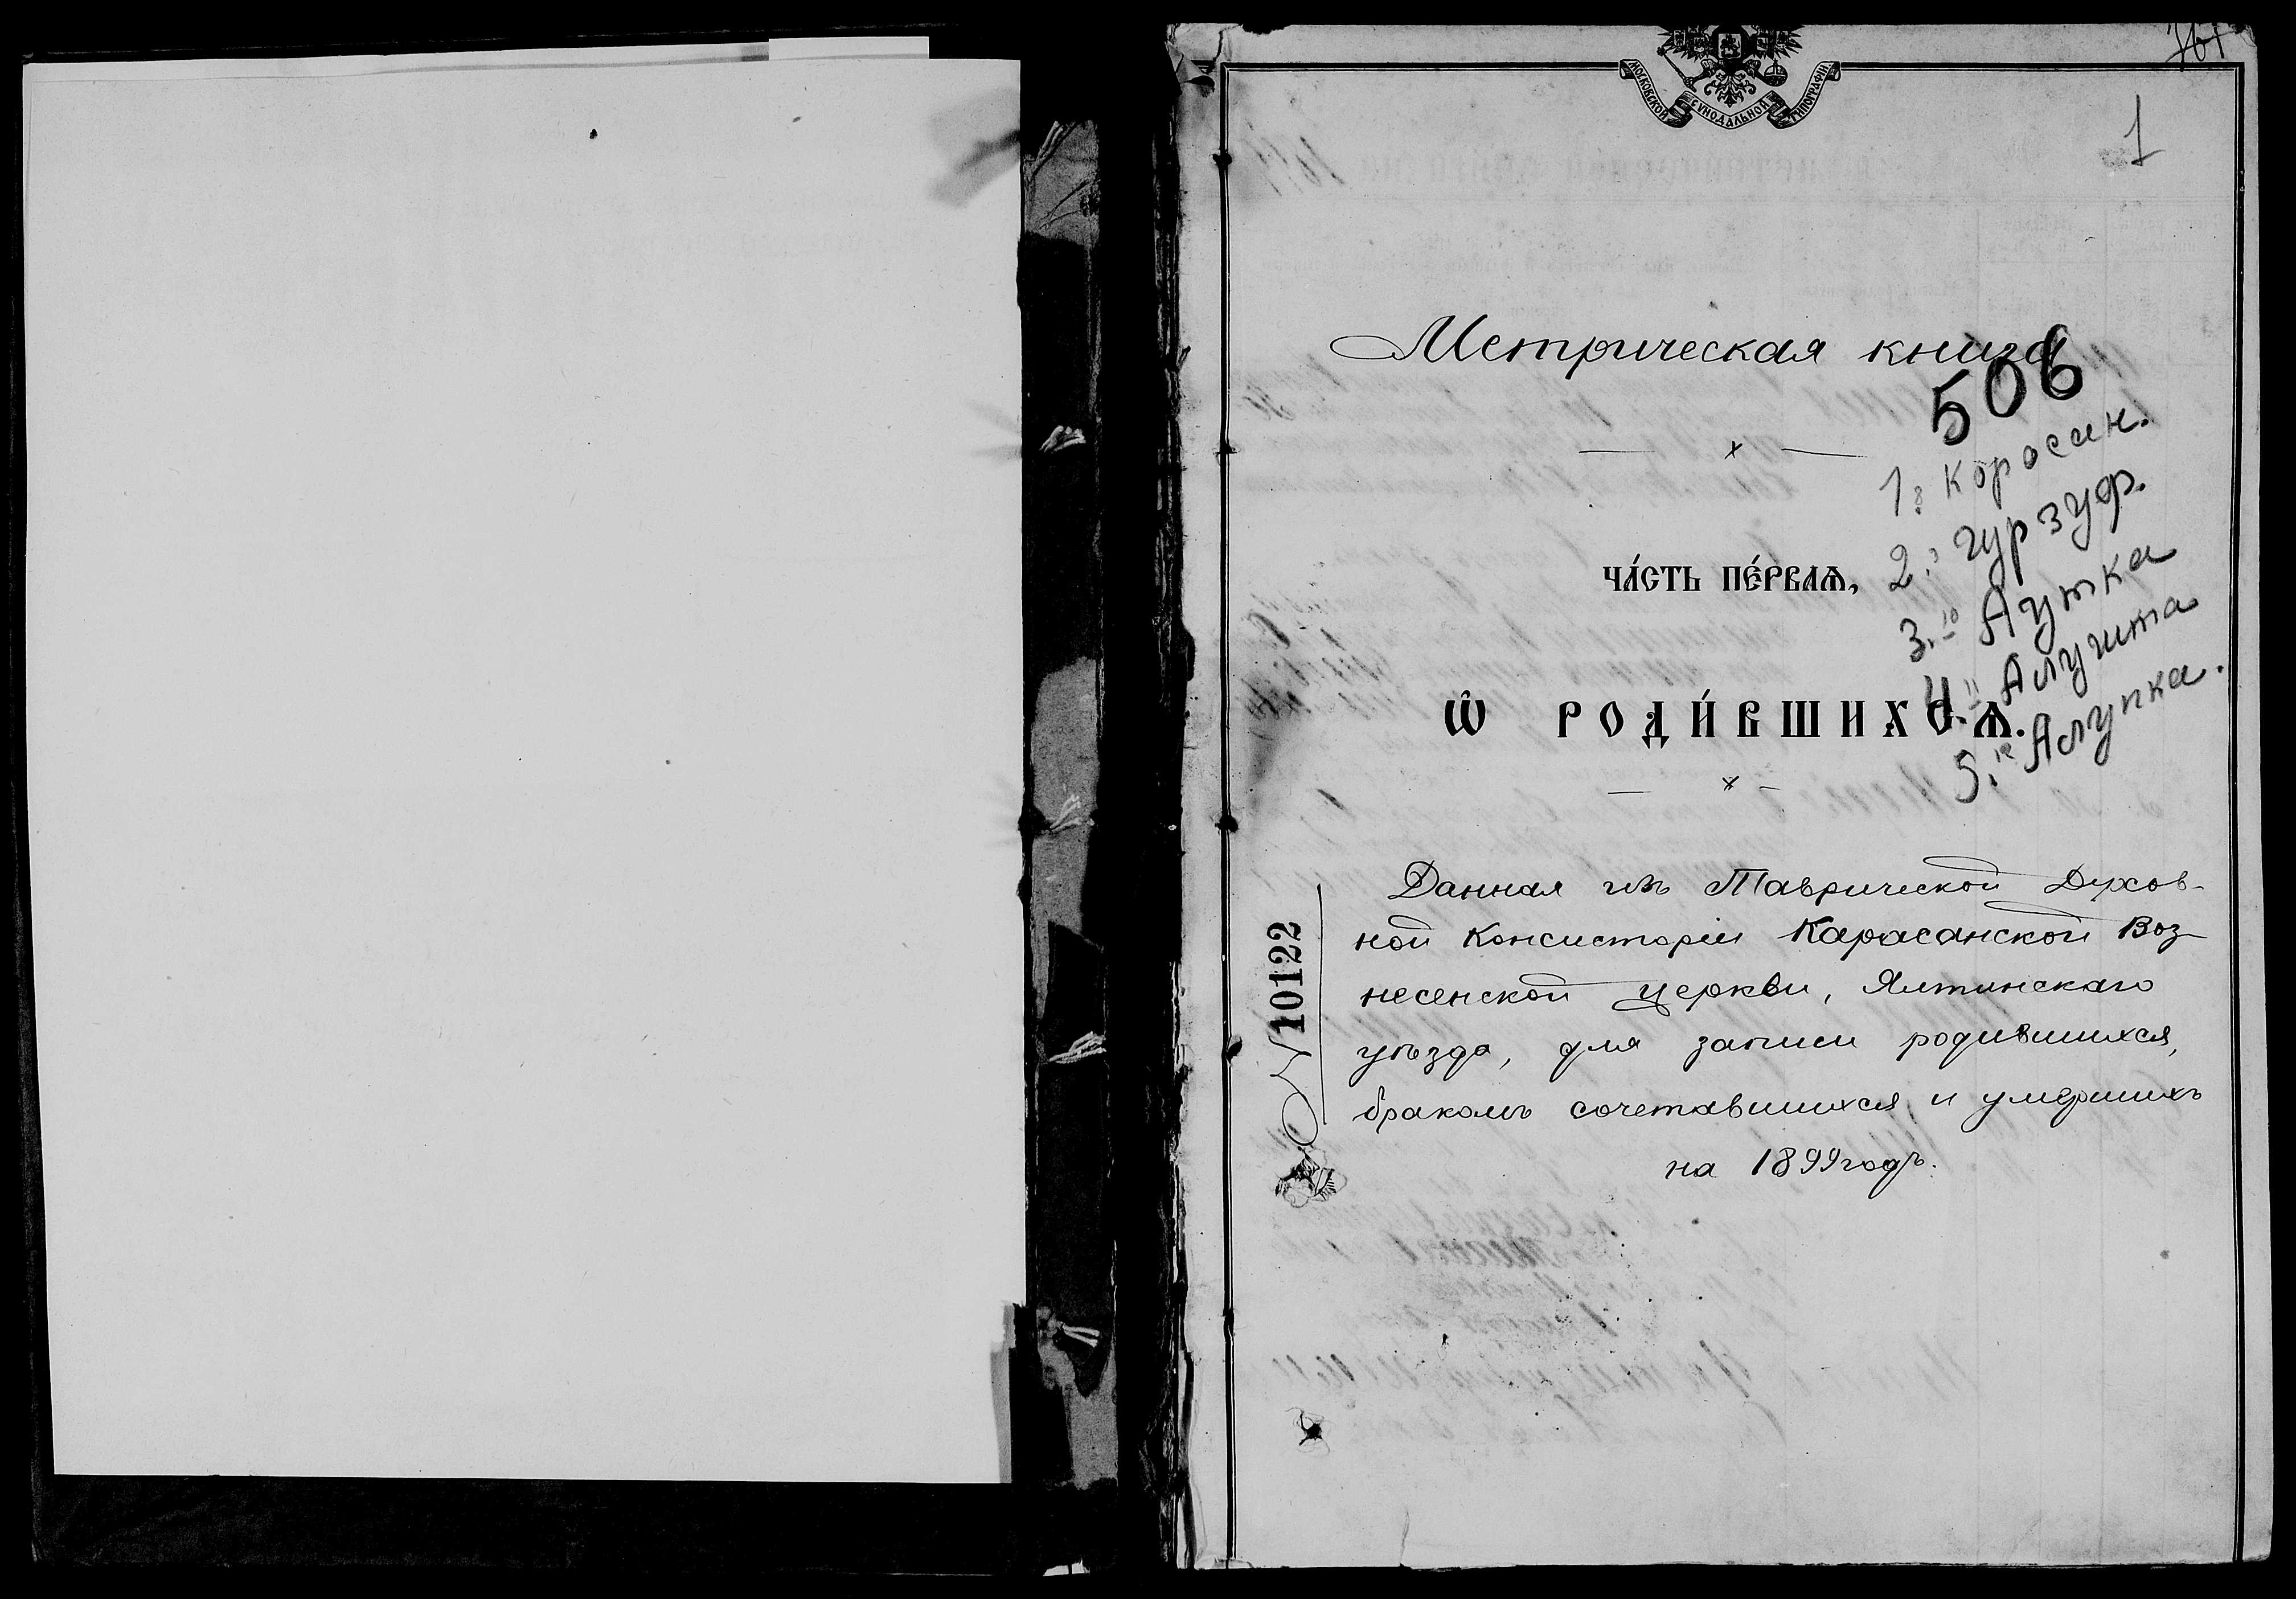 МОСКОВСКОЙ СѴНОДАЛЬНОЙ ТИПОГРАФІИ.
1
Метрическая книга
506
1. Корасан.
2. Гурзуф.
3. Аутка
4. Алушта
5. Алупка.
ЧА́СТЬ ПЕ́РВАѦ,
Ѡ҆ РОДИ́ВШИХСѦ.
Данная изъ Таврической Духов-
ной Консисторіи Карасанской Воз-
несенской церкви, Ялтинскаго
уѣзда, для записи родившихся,
бракомъ сочетавшихся и умершихъ
на 1899 годъ.
№ 10122